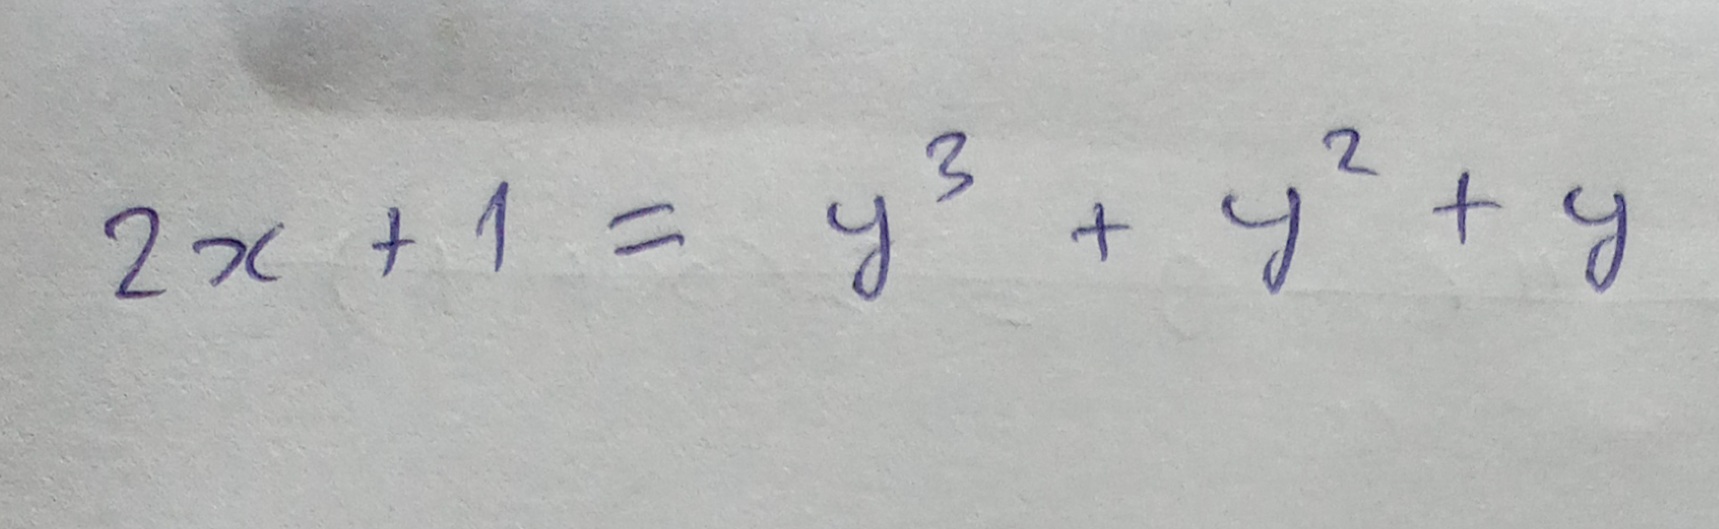 2x + 1 = y³ + y² + y